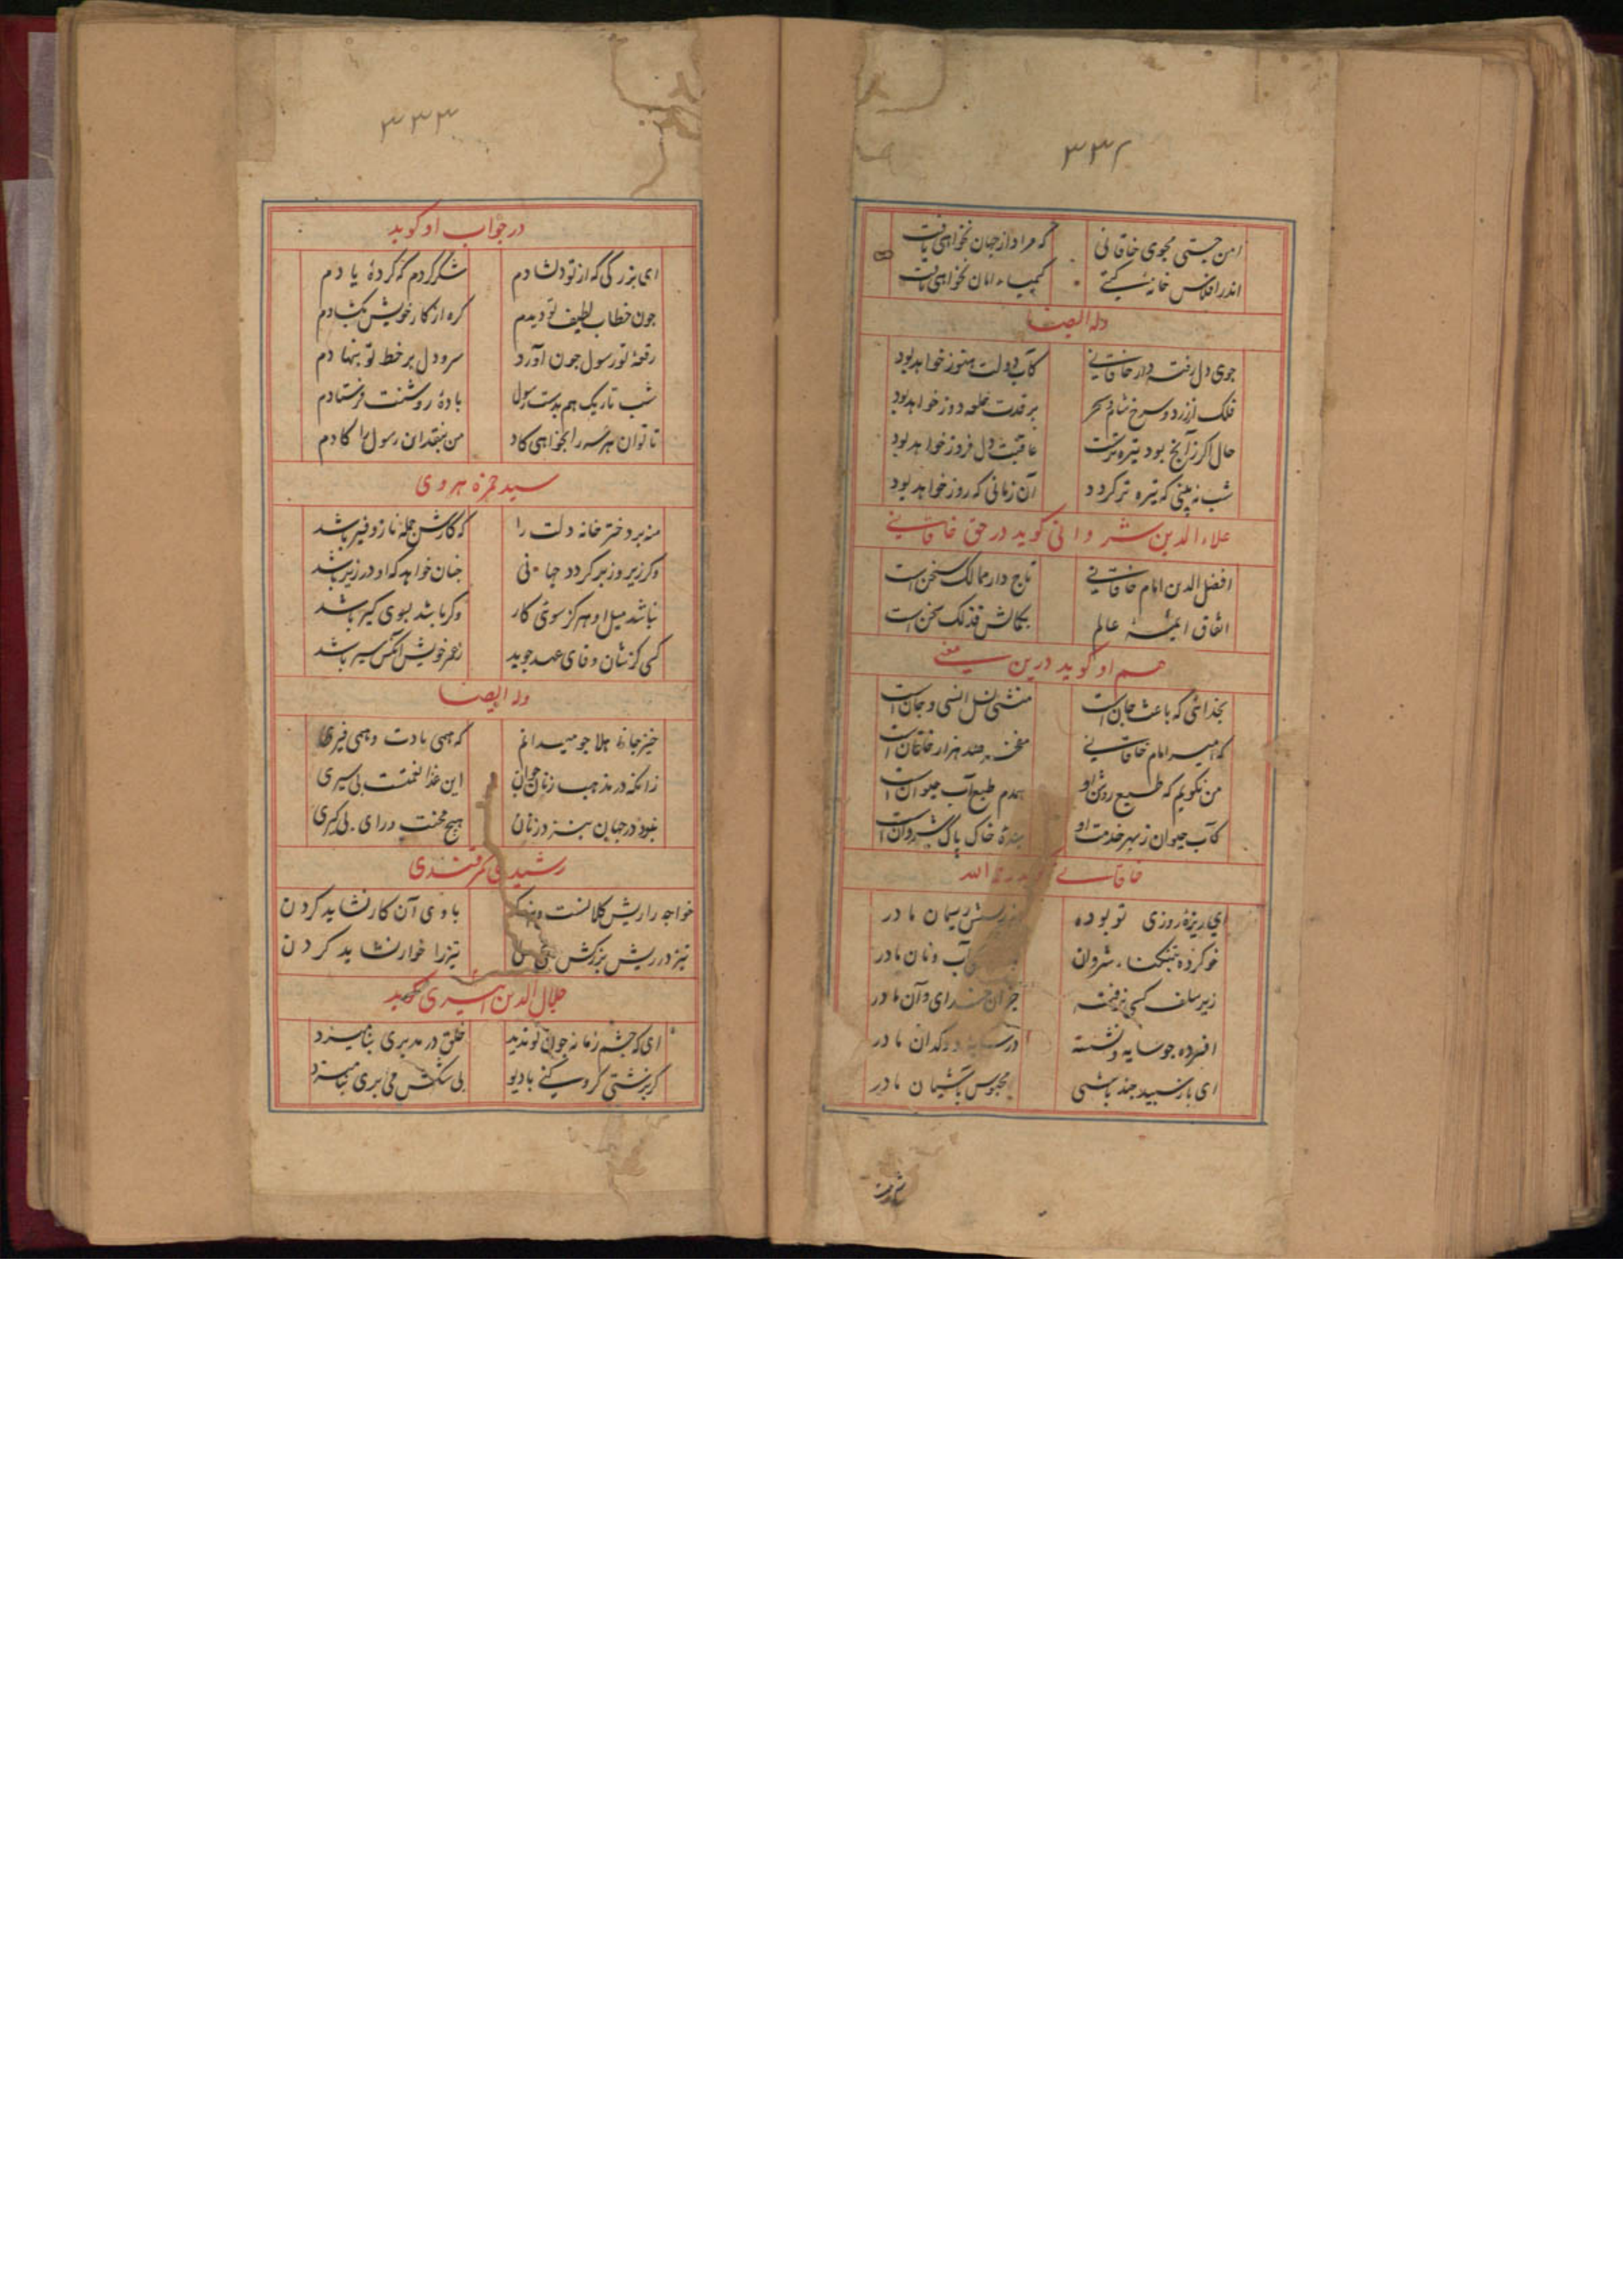 ۳۳۲
امن جستی مجوی خاقانی که مراد از جهان نخواهی یافت
اندر افلاس خانه گیتی کیمیاء امان نخواهی یافت
وله ایضا
جوی دل رفته دار خاقانی کآب دولت هنوز خواهد بود
فلک از زرد و سرخ شام و سحر بر قدت خلعه دوز خواهد بود
حال اگر زآنج بود تیره‌ترست عاقبت دل فروز خواهد بود
شب نه بینی که تیره تر گردد آن زمانی که روز خواهد بود
علاء الدین شروانی گوید در حق خاقانی
افضل الدین امام خاقانی تاج دار ممالک سخن است
اتفاق ائمهٔ عالم بکمالش فذلک سخن است
هم او گوید درین معنی
بخدائی که باعث جان است منشی نسل انسی و جان است
که امیر امام خاقانی مفخر صد هزار خاقان است
من نگویم که طبع روشن او همدم طبع آب حیوان است
کآب حیوان ز بهر خدمت او بندهٔ خاک پاک شروان است
خاقانی رحمه الله
ای ریزهٔ روزی تو بوده از ریسش ریسمان مادر
خو کرده بتنگناء شروان آب و نان مادر
زیر سلف کسی نرفته جز آن خدای و آن مادر
افسرده چو سایه و نشسته در سایهٔ دوکدان مادر
ای باز سپید چند باشی محبوس بآشیان مادر
۳۳۳
در جواب او گوید
ای بزرگی که از تو دلشادم شکر کردم که کردهٔ یادم
چون خطاب لطیف تو دیدم گره از کار خویش بگشادم
رقعهٔ تو رسول چون آورد سر و دل بر خط تو بنهادم
شب تاریک هم بدست رسول بادهٔ روشنت فرستادم
تا توان هر را بخواهی گاد من بنقد آن رسول را گادم
سید حمزه هروی
منه بر دختر خانه دلت را که کارش جمله ناز و فیر باشد
وگر زیر و زبر گردد جهانی چنان خواهد که او در زیر باشد
نباشد میل او هرگز سوی کار وگر باشد بسوی کیر باشد
کسی کز نشان وفای عهد جوید ز عمر خویش آنکس سیر باشد
وله ایضا
خیز جانا هلا چو میدانم که همی بادت و همی
زانکه در مذهب زنان جوان این غذا نعمتست بی سیری
نبود در جهان بنزد زنان هیچ محنت ورای بی کیری
رشیدی سمرقندی
خواجه را ریش کلانست و بزرگ با وی آن کار نشاید کردن
تیز در ریش بزرگش تیز را خوار نشاید کردن
جلال الدین گوید
ای که چشم زمانه چون تو ندید خلق در مدبری بنامیزد
گر بزشتی گرو کنی با دیو بی شکش می‌بری بنامیزد